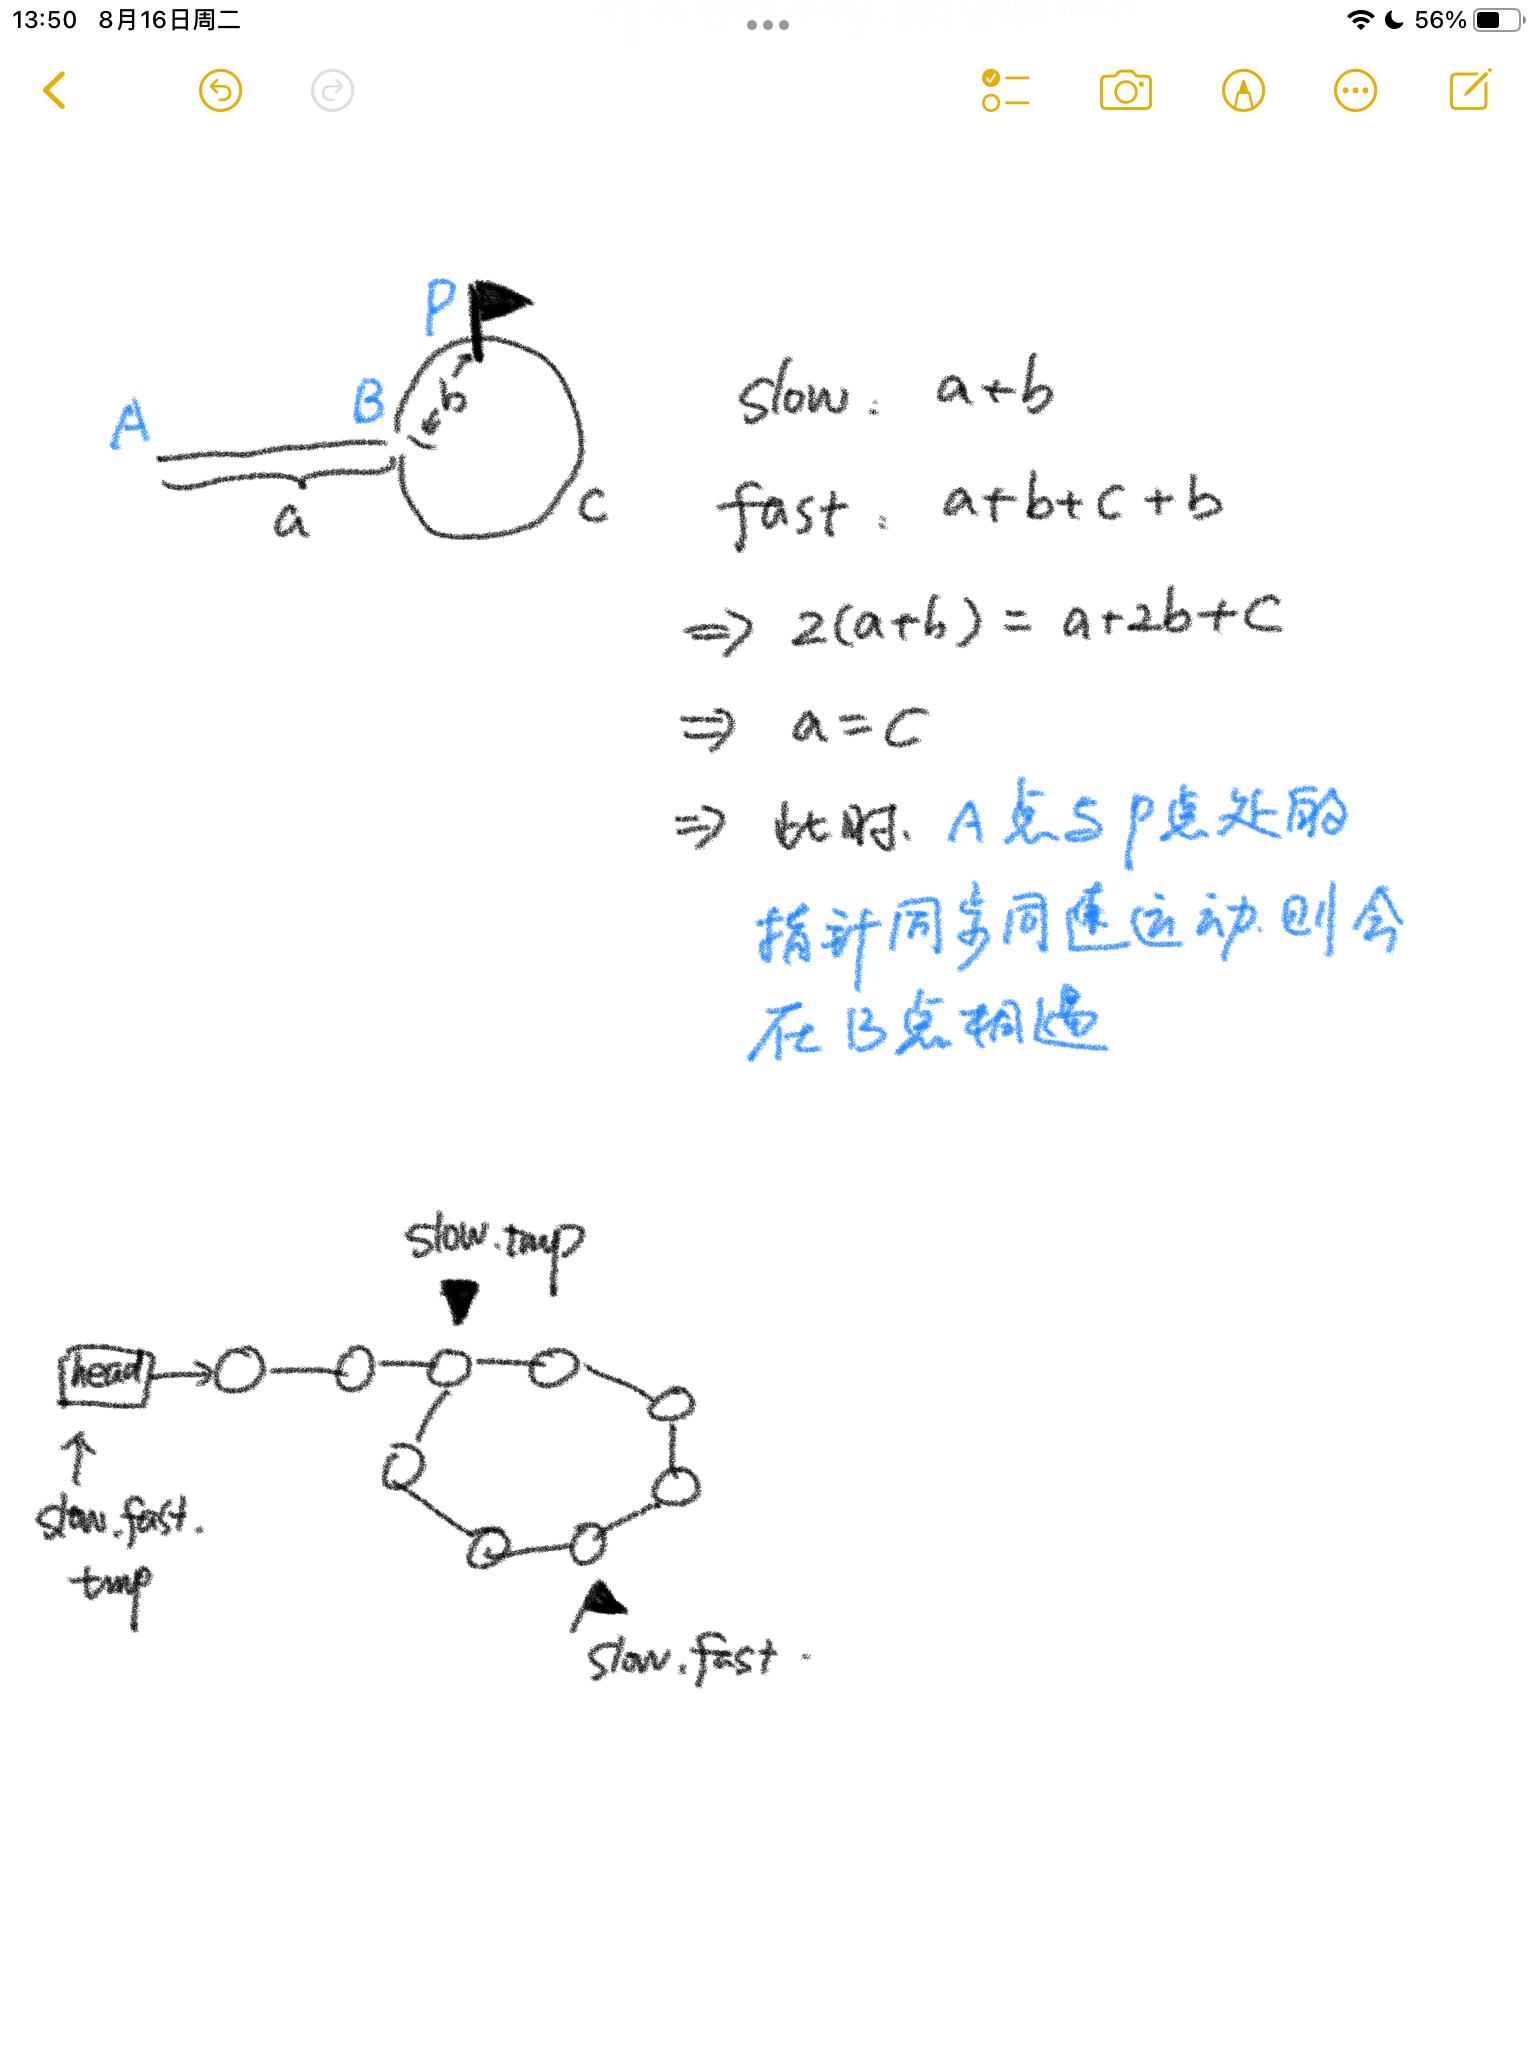 13:50 8月16日周二
56%
P
B
b
A
a
C
slow: a+b
fast: a+b+c+b
⇒ 2(a+b) = a+2b+C
⇒ a=C
⇒ 此时. A点与P点处的
指针同步同速运动.则会
在B点相遇
slow.tmp
head
slow.fast.
tmp
slow.fast.